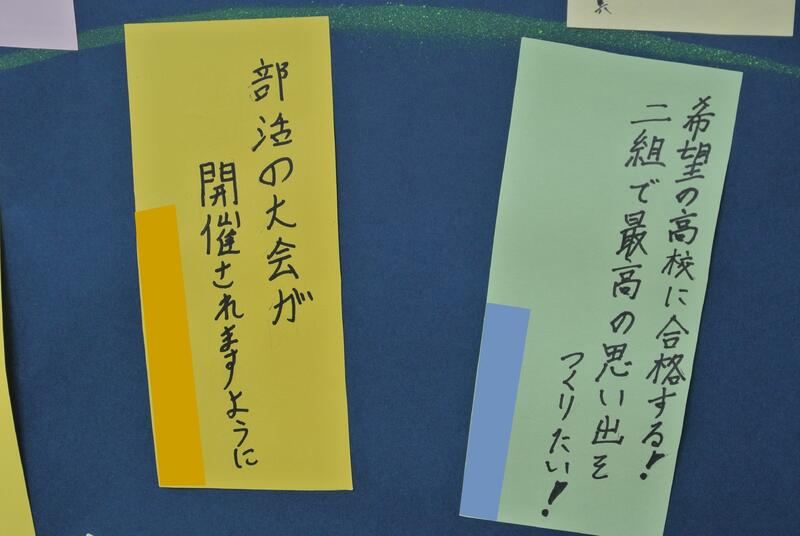 部活の大会が
開催されますように
希望の高校に合格する!
二組で最高の思い出を
つくりたい!